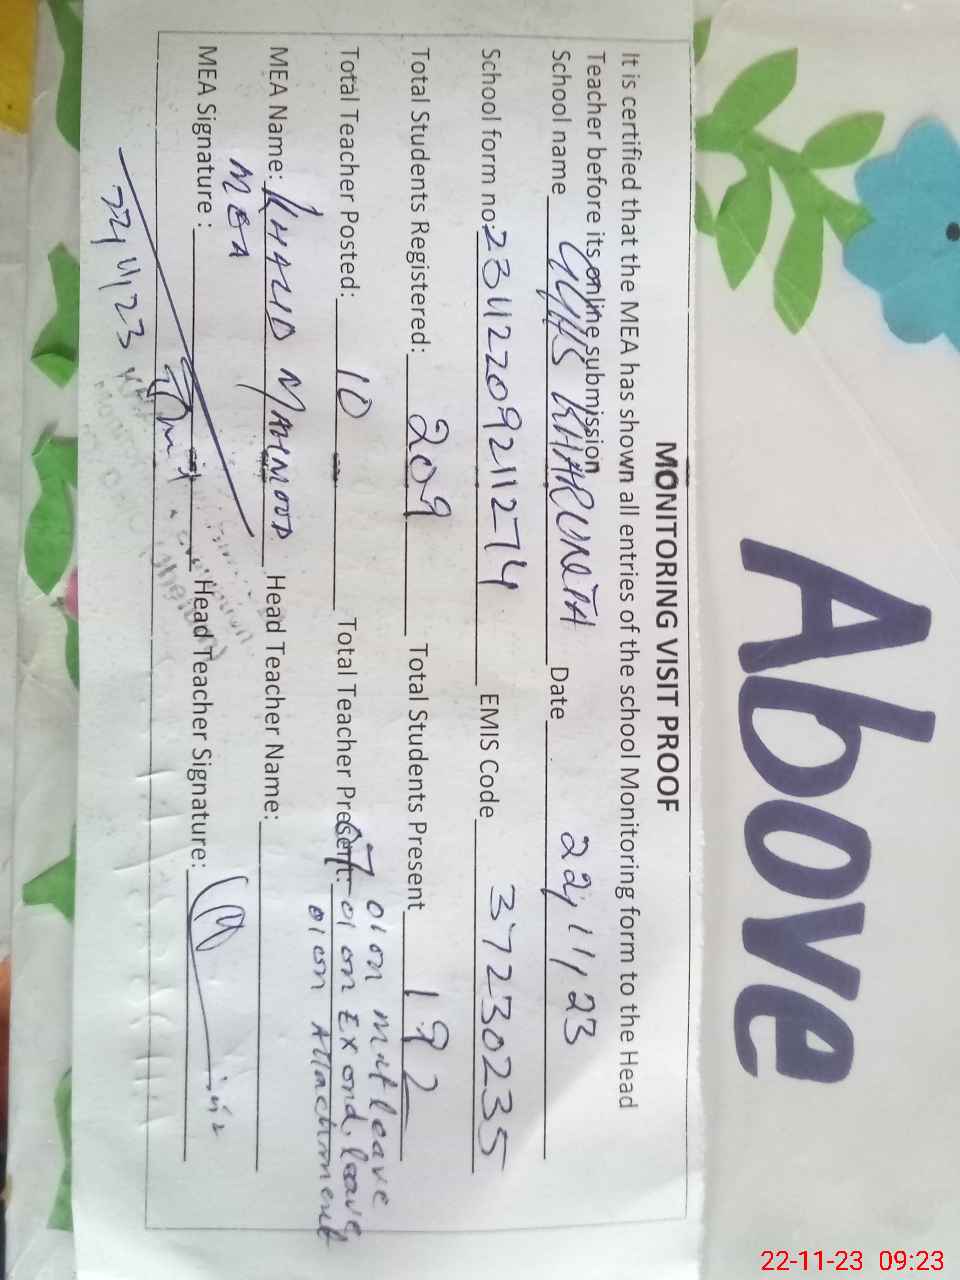 Above
MONITORING VISIT PROOF
It is certified that the MEA has shown all entries of the school Monitoring form to the Head
Teacher before its online submission
School name GGHS KHARUNETA Date 22/11/23
School form no: 23112209211274 EMIS Code 37230235
Total Students Registered: 209 Total Students Present 192
Total Teacher Posted: 10 Total Teacher Present: 07
01 on mat leave
01 on Ex ond. leave
01 on Attachment
MEA Name: KHALID MAHMOOD Head Teacher Name:
MEA
MEA Signature : Head Teacher Signature:
22/11/23
22-11-23 09:23